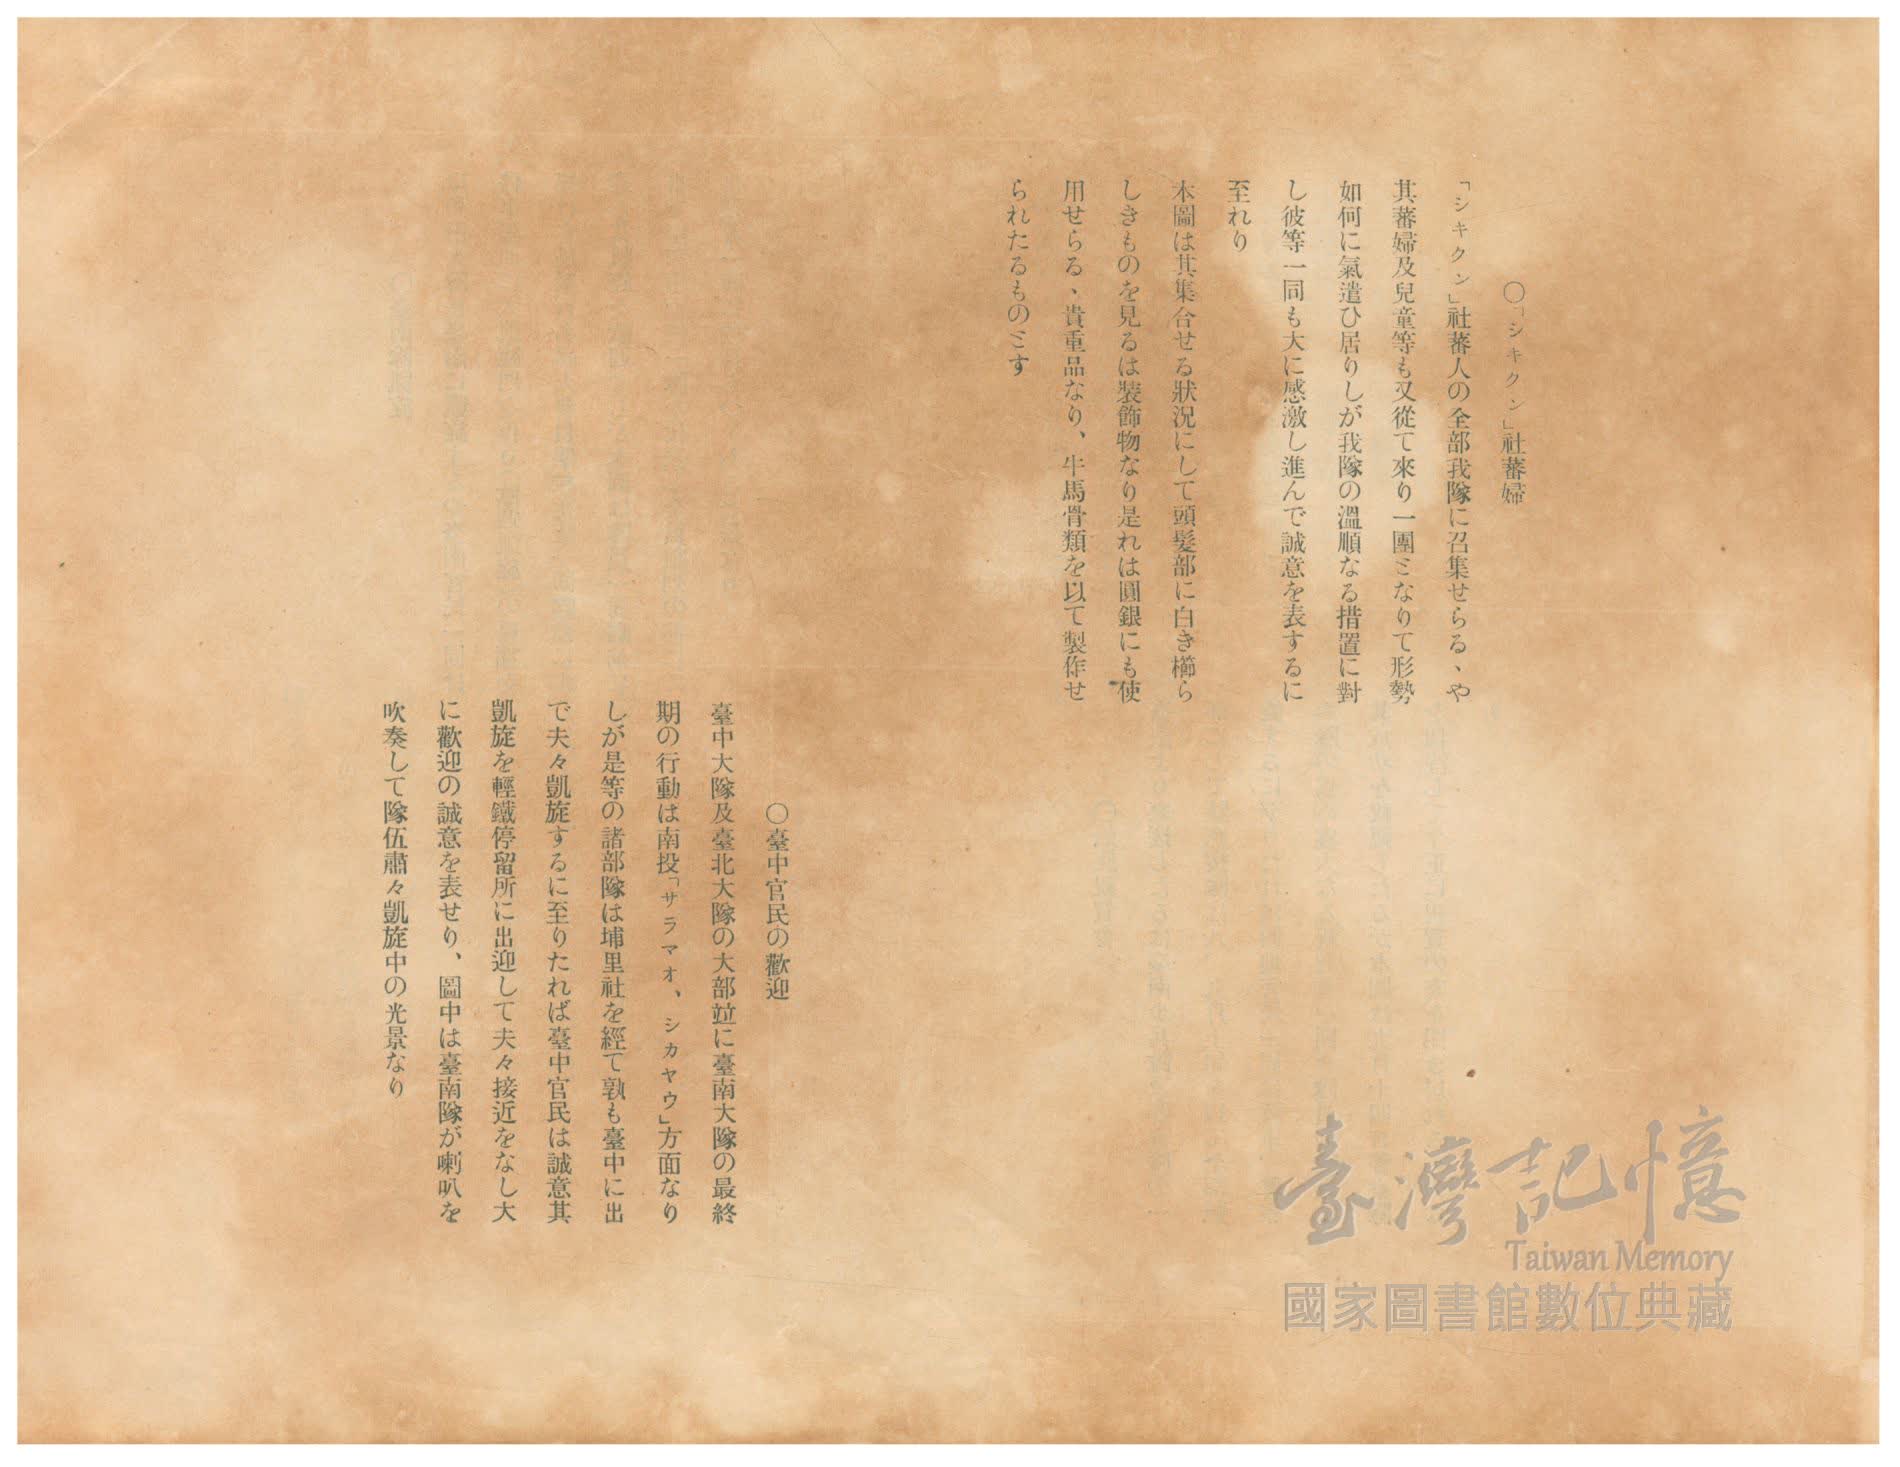 〇「シキクン」社蕃婦
「シキクン」社蕃人の全部我隊に召集せらるゝや
其蕃婦及兒童等も又從て來り一團ミなりて形勢
如何に氣遣ひ居りしが我隊の溫順なる措置に對
し彼等一同も大に感激し進んで誠意を表するに
至れり
本圖は其集合せる狀況にして頭髮部に白き櫛ら
しきものを見るは裝飾物なり是れは圓銀にも使
用せらるゝ貴重品なり、牛馬骨類を以て製作せ
られたるものミす
〇臺中官民の歡迎
臺中大隊及臺北大隊の大部竝に臺南大隊の最終
期の行動は南投「サラマオ、シカヤウ」方面なり
しが是等の諸部隊は埔里社を經て孰も臺中に出
で夫々凱旋するに至りたれば臺中官民は誠意其
凱旋を輕鐵停留所に出迎して夫々接近をなし大
に歡迎の誠意を表せり、圖中は臺南隊が喇叭を
吹奏して隊伍肅々凱旋中の光景なり
臺灣記憶
Taiwan Memory
國家圖書館數位典藏